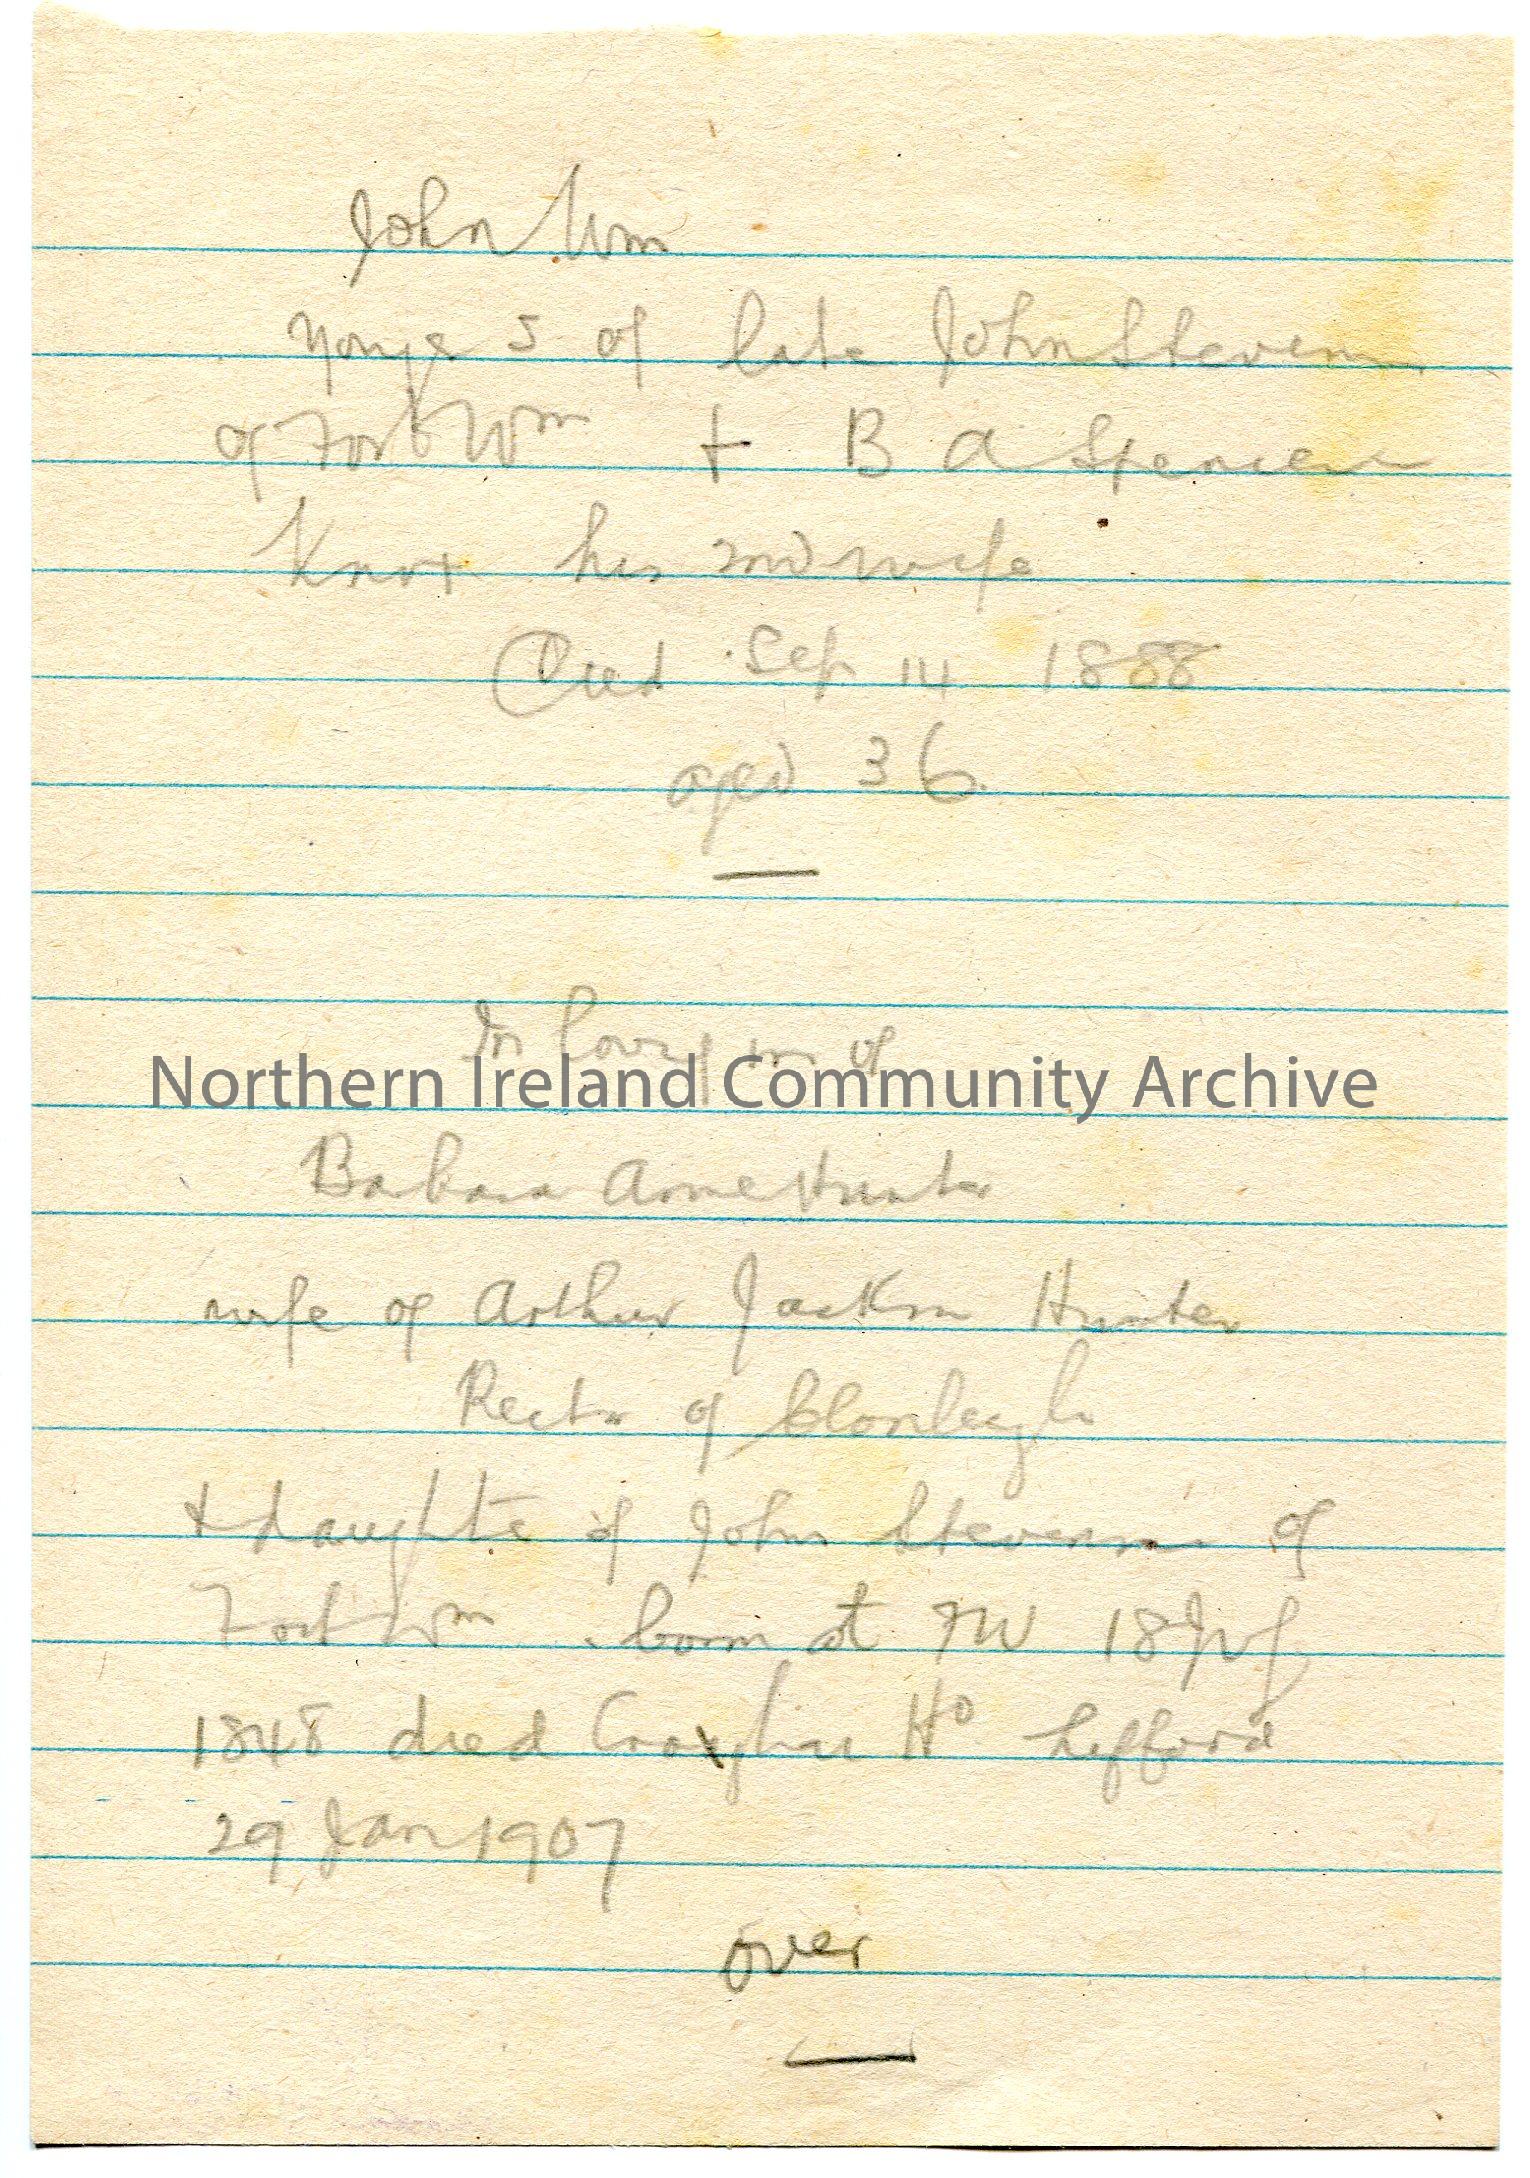 John Wm
Yonge S of late John Stevenson
of Fort Wm + B A Spencer
Knox his 2nd wife
Died Sep 14 1888
aged 36
In loving m of
Northern Ireland Community Archive
Barbara Anne Hunter
wife of Arthur Jackson Hunter
Rector of Clonleigh
+ daughter of John Stevenson of
Fort Wm born at FW 18 July
1848 died Croaghan Ho Lifford
29 Jan 1907
over